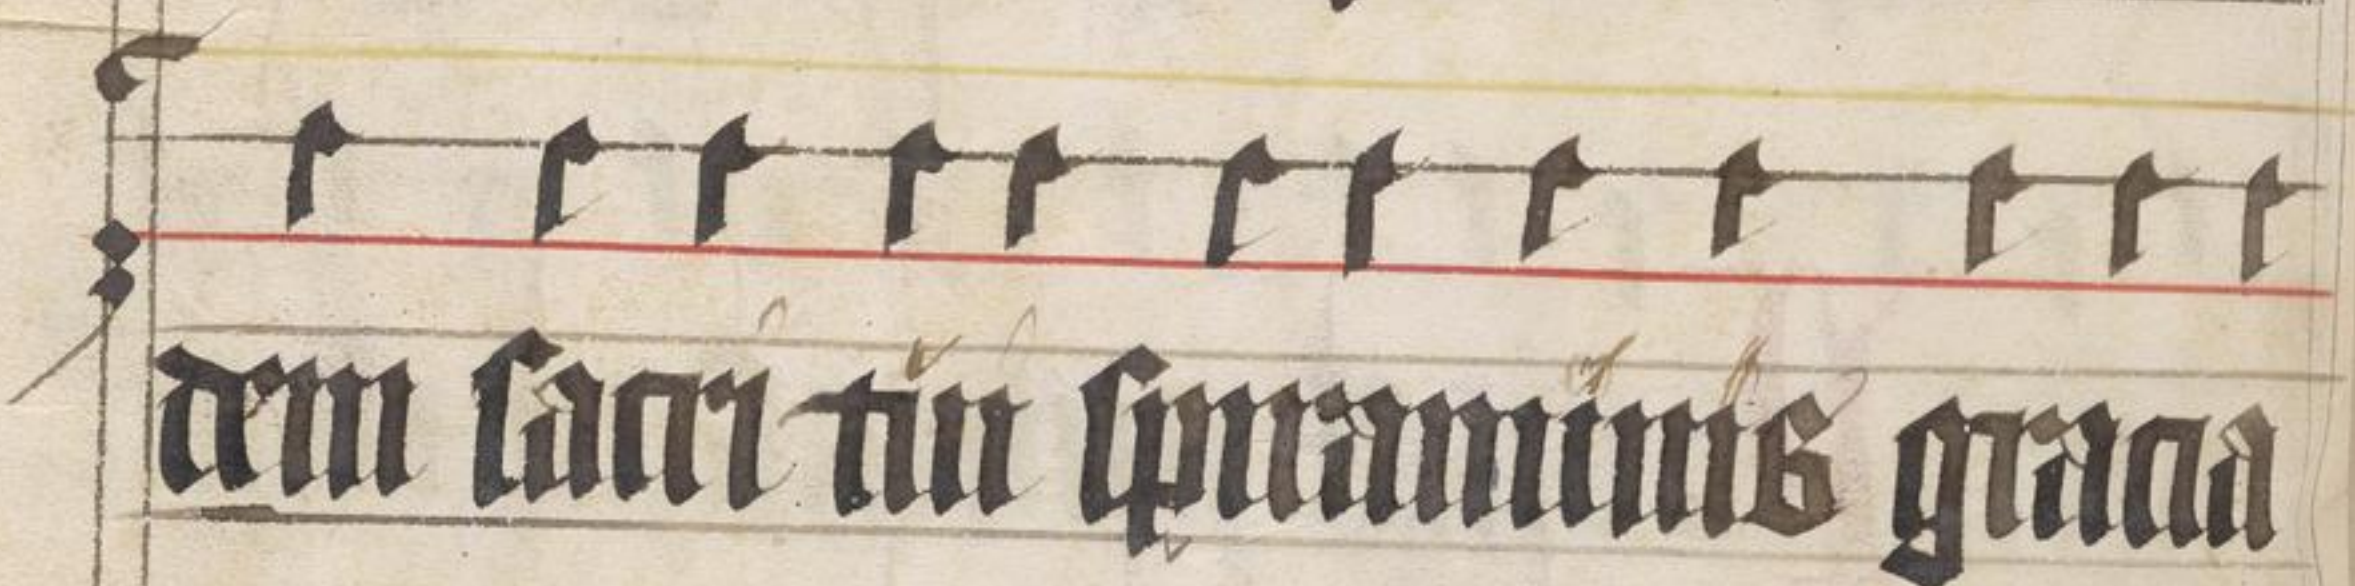 dem sacri tui spiraminis gracia